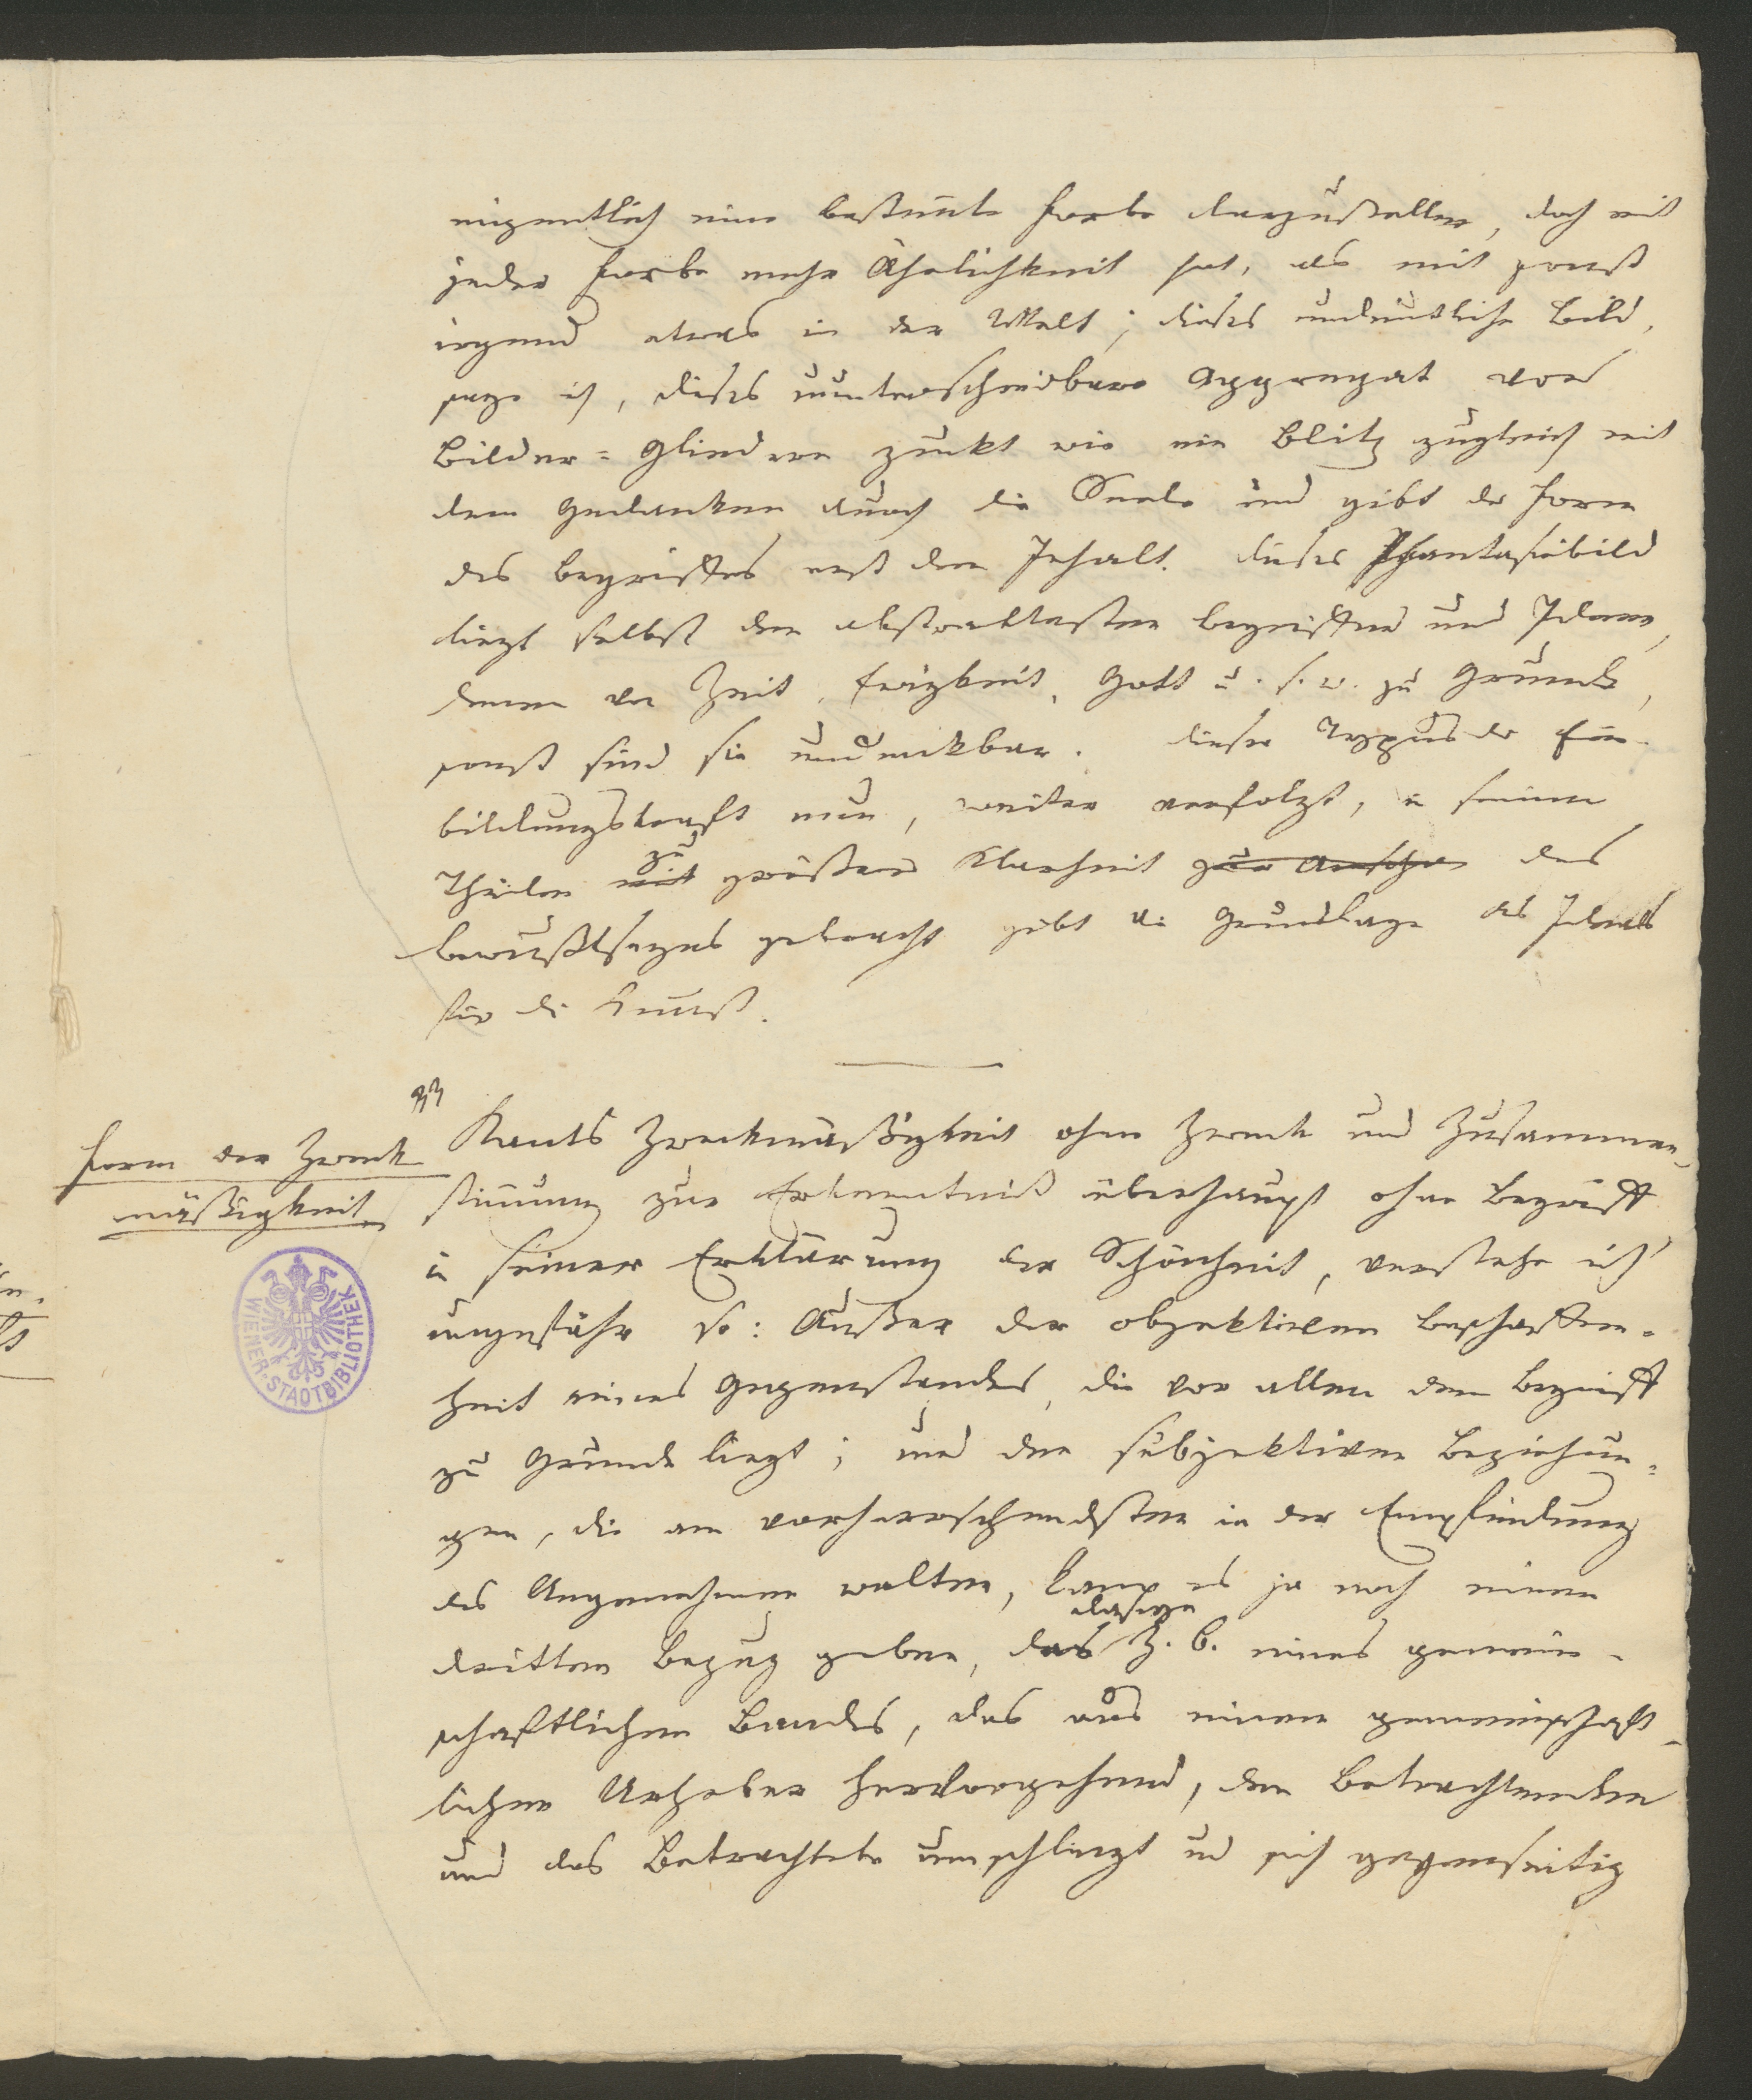 eigentlich eine bestimte Farbe darzustellen, doch mit
jeder Farbe mehr Ähnlichkeit hat, als mit sonst
irgend etwas in der Welt; dieses undeutliche Bild,
sage ich, dieses ununterscheidbare Aggregat von
Bilder-Gliedern zuckt wie ein Blitz zugleich mit
dem Gedanken durch die Seele und gibt der Form
des Begriffes erst den Inhalt. Dieses Phantasiebild
liegt selbst den abstraktesten Begriffen und Ideen,
denen von Zeit, Ewigkeit, Gott u. s. w. zu Grunde,
sonst sind sie undenkbar. Dieser Typus der Ein-
bildungskraft nun, weiter verfolgt, in seinen
zu
Theilen mit größerer Klarheit zur Anschau des
Bewußtseyns gebracht gibt die Grundlage des Ideals
für die Kunst.
Form der Zweck
mäßigkeit
33
Kants Zweckmäßigkeit ohne Zweck und Zusammen-
stimung zur Erkenntniß überhaupt ohne Begriff
in seiner Erklärung der Schönheit, verstehe ich
ungefähr so: Außer der objektiven Beschaffen-
heit eines Gegenstandes, die vor allem dem Begriff
zu Grunde liegt; und den subjektiven Beziehun-
gen, die am vorherrschendsten in der Empfindung
des Angenehmen walten, kann es ja noch einen
dasige
dritten Bezug geben, das z. B. eines gemein-
schaftlichen Bandes, das aus einem gemeinschaft-
lichen Urheber hervorgehend, den Betrachtenden
und das Betrachtete umschliegt und sich gegenseitig
WIENER STADTBIBLIOTHEK